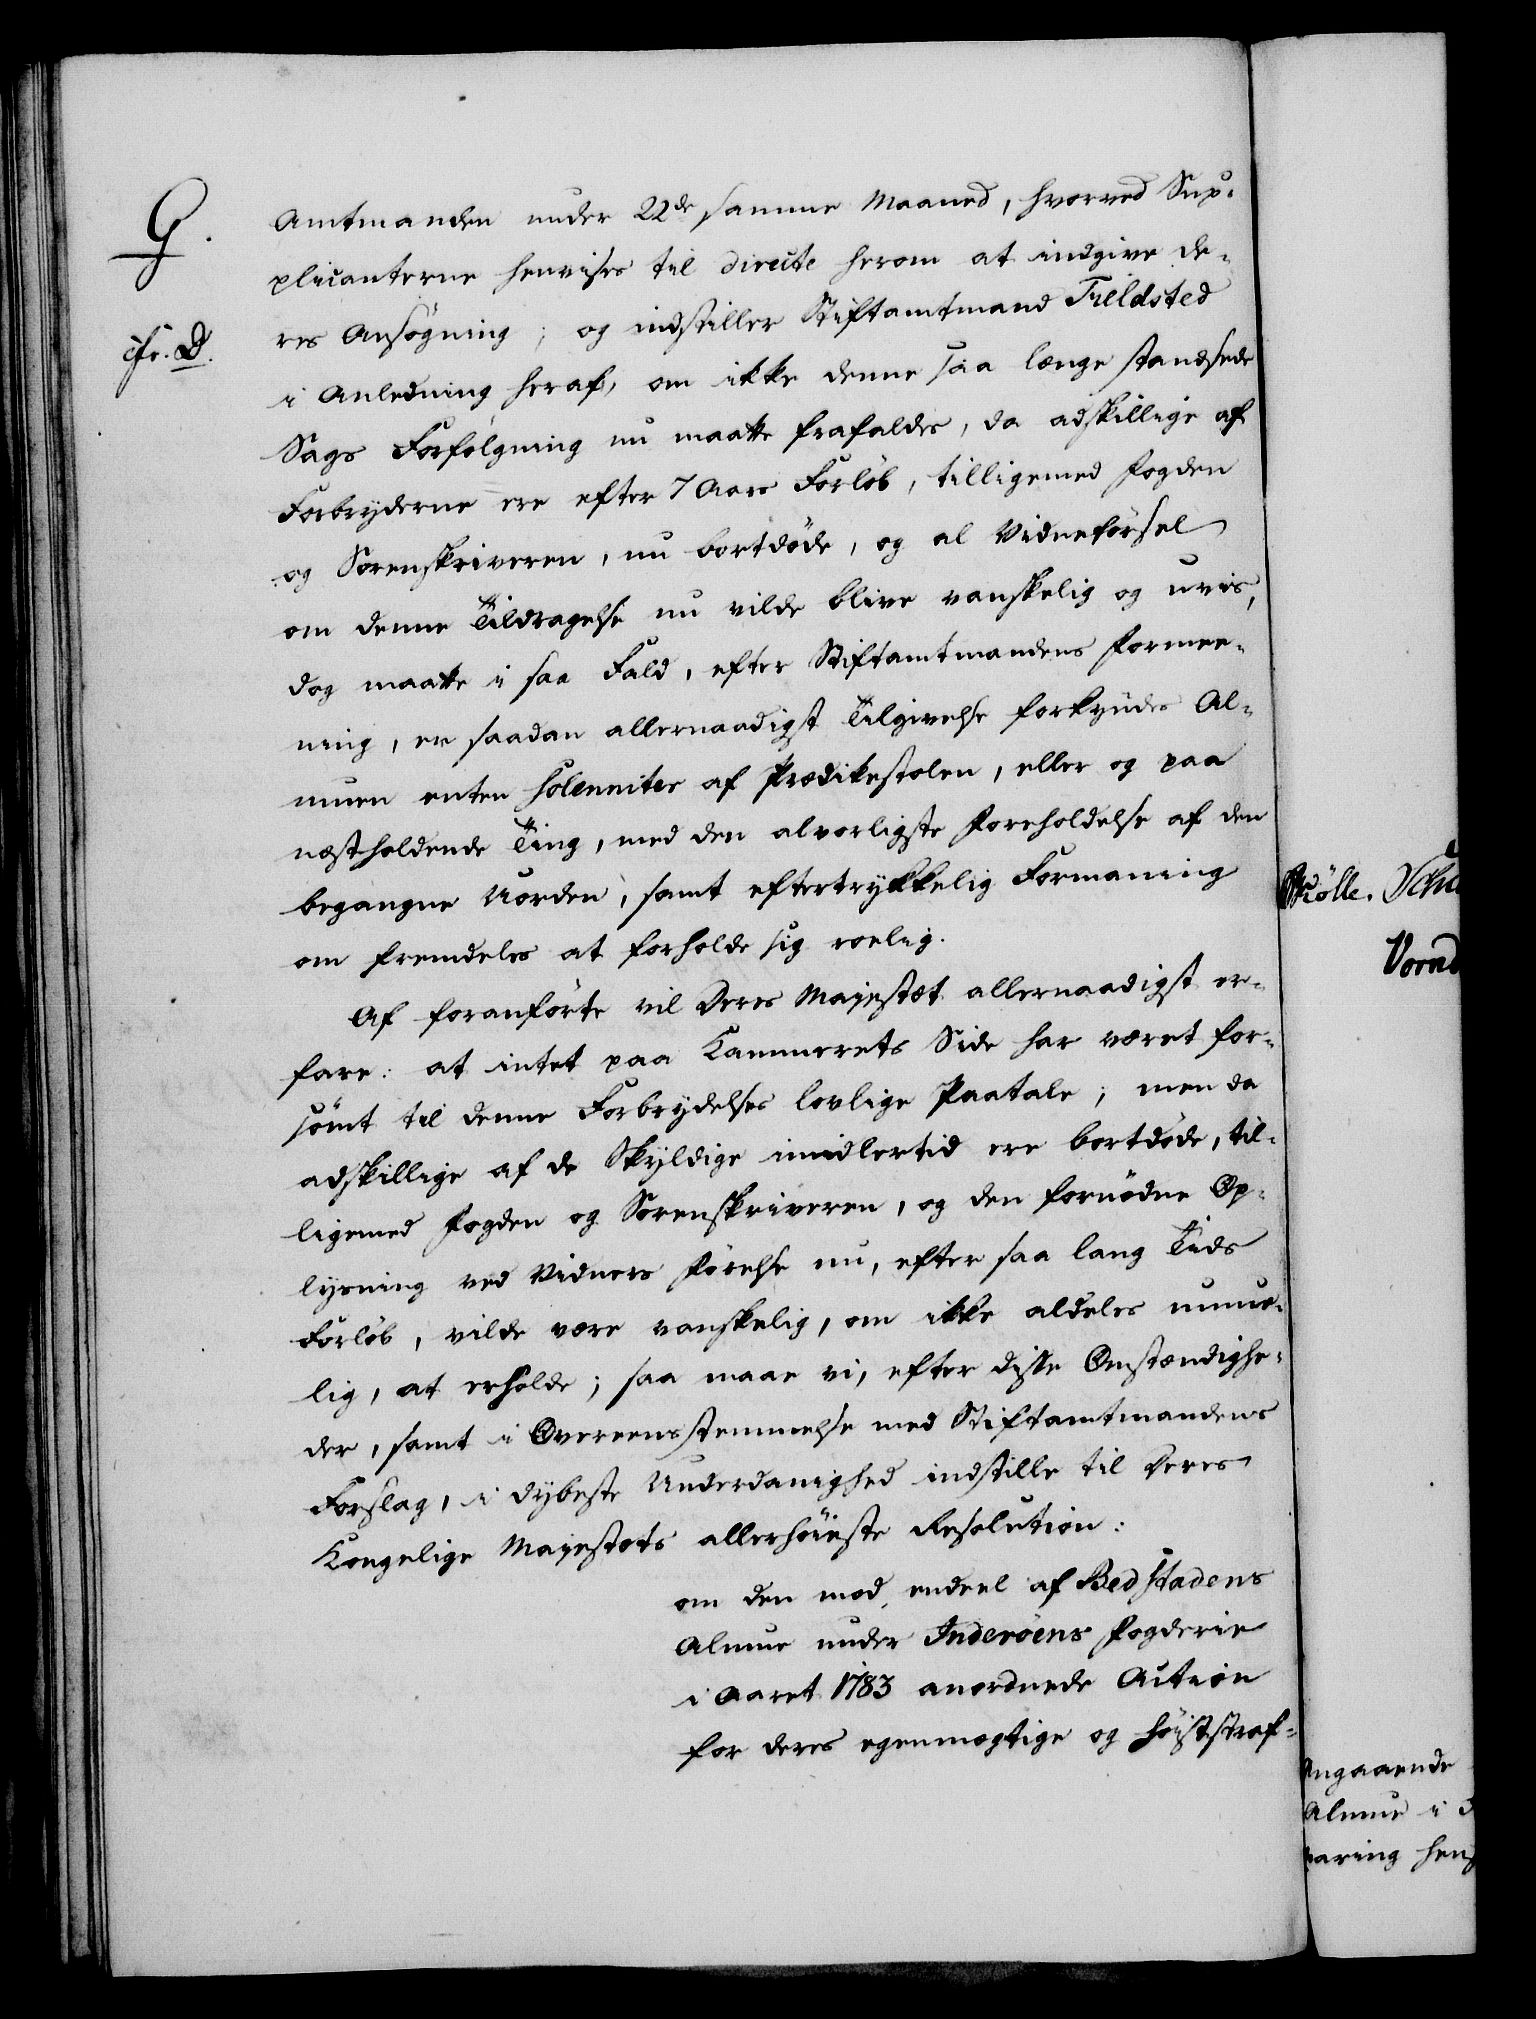 G.
cfr. D.
Amtmanden under 22de samme Maaned, hvorved Sup-
plicanterne henvises til directe herom at indgive de-
res Ansøgning; og indstiller Stiftamtmand Fieldsted
i Anledning heraf, om ikke denne saa længe standsede
Sags Forfølgning nu maatte frafaldes, da adskillige af
Forbryderne ere efter 7 Aars Forløb, tilligemed Fogden
og Sorenskriveren, nu bortdøde, og al Vidneførsel
om denne Tildragelse nu vilde blive vanskelig og uvis,
dog maatte i saa Fald, efter Stiftamtmandens Formee-
ning, en saadan allernaadigst Tilgivelse forkyndes Al-
muen enten solenniter af Prædikestolen, eller og paa
næstholdende Ting, med den alvorligste Foreholdelse af den
begangne Uorden, samt eftertrykkelig Formaning
om fremdeles at forholde sig roelig.
Af foranførte vil Deres Majestæt allernaadigst er-
fare: at intet paa Kammerets Side har været for-
sømt til denne Forbrydelses lovlige Paatale; men da
adskillige af de Skyldige imidlertid ere bortdøde, til-
ligemed Fogden og Sorenskriveren, og den fornødne Op-
lysning ved Vidners Førelse nu, efter saa lang Tids
Forløb, vilde være vanskelig, om ikke aldeles umue-
lig, at erholde; saa maae vi, efter disse Omstændighe-
der, samt i Overeensstemmelse med Stiftamtmandens
Forslag, i dybeste Underdanighed indstille til Deres
Kongelige Majestæts allerhøieste Resolution:
om den mod endeel af Bedstadens
Almue under Inderøens Fogderie
i Aaret 1783 anordnede Action
for deres egenmægtige og høiststraf-
Schu
Vornd
Angaaende
Almue i